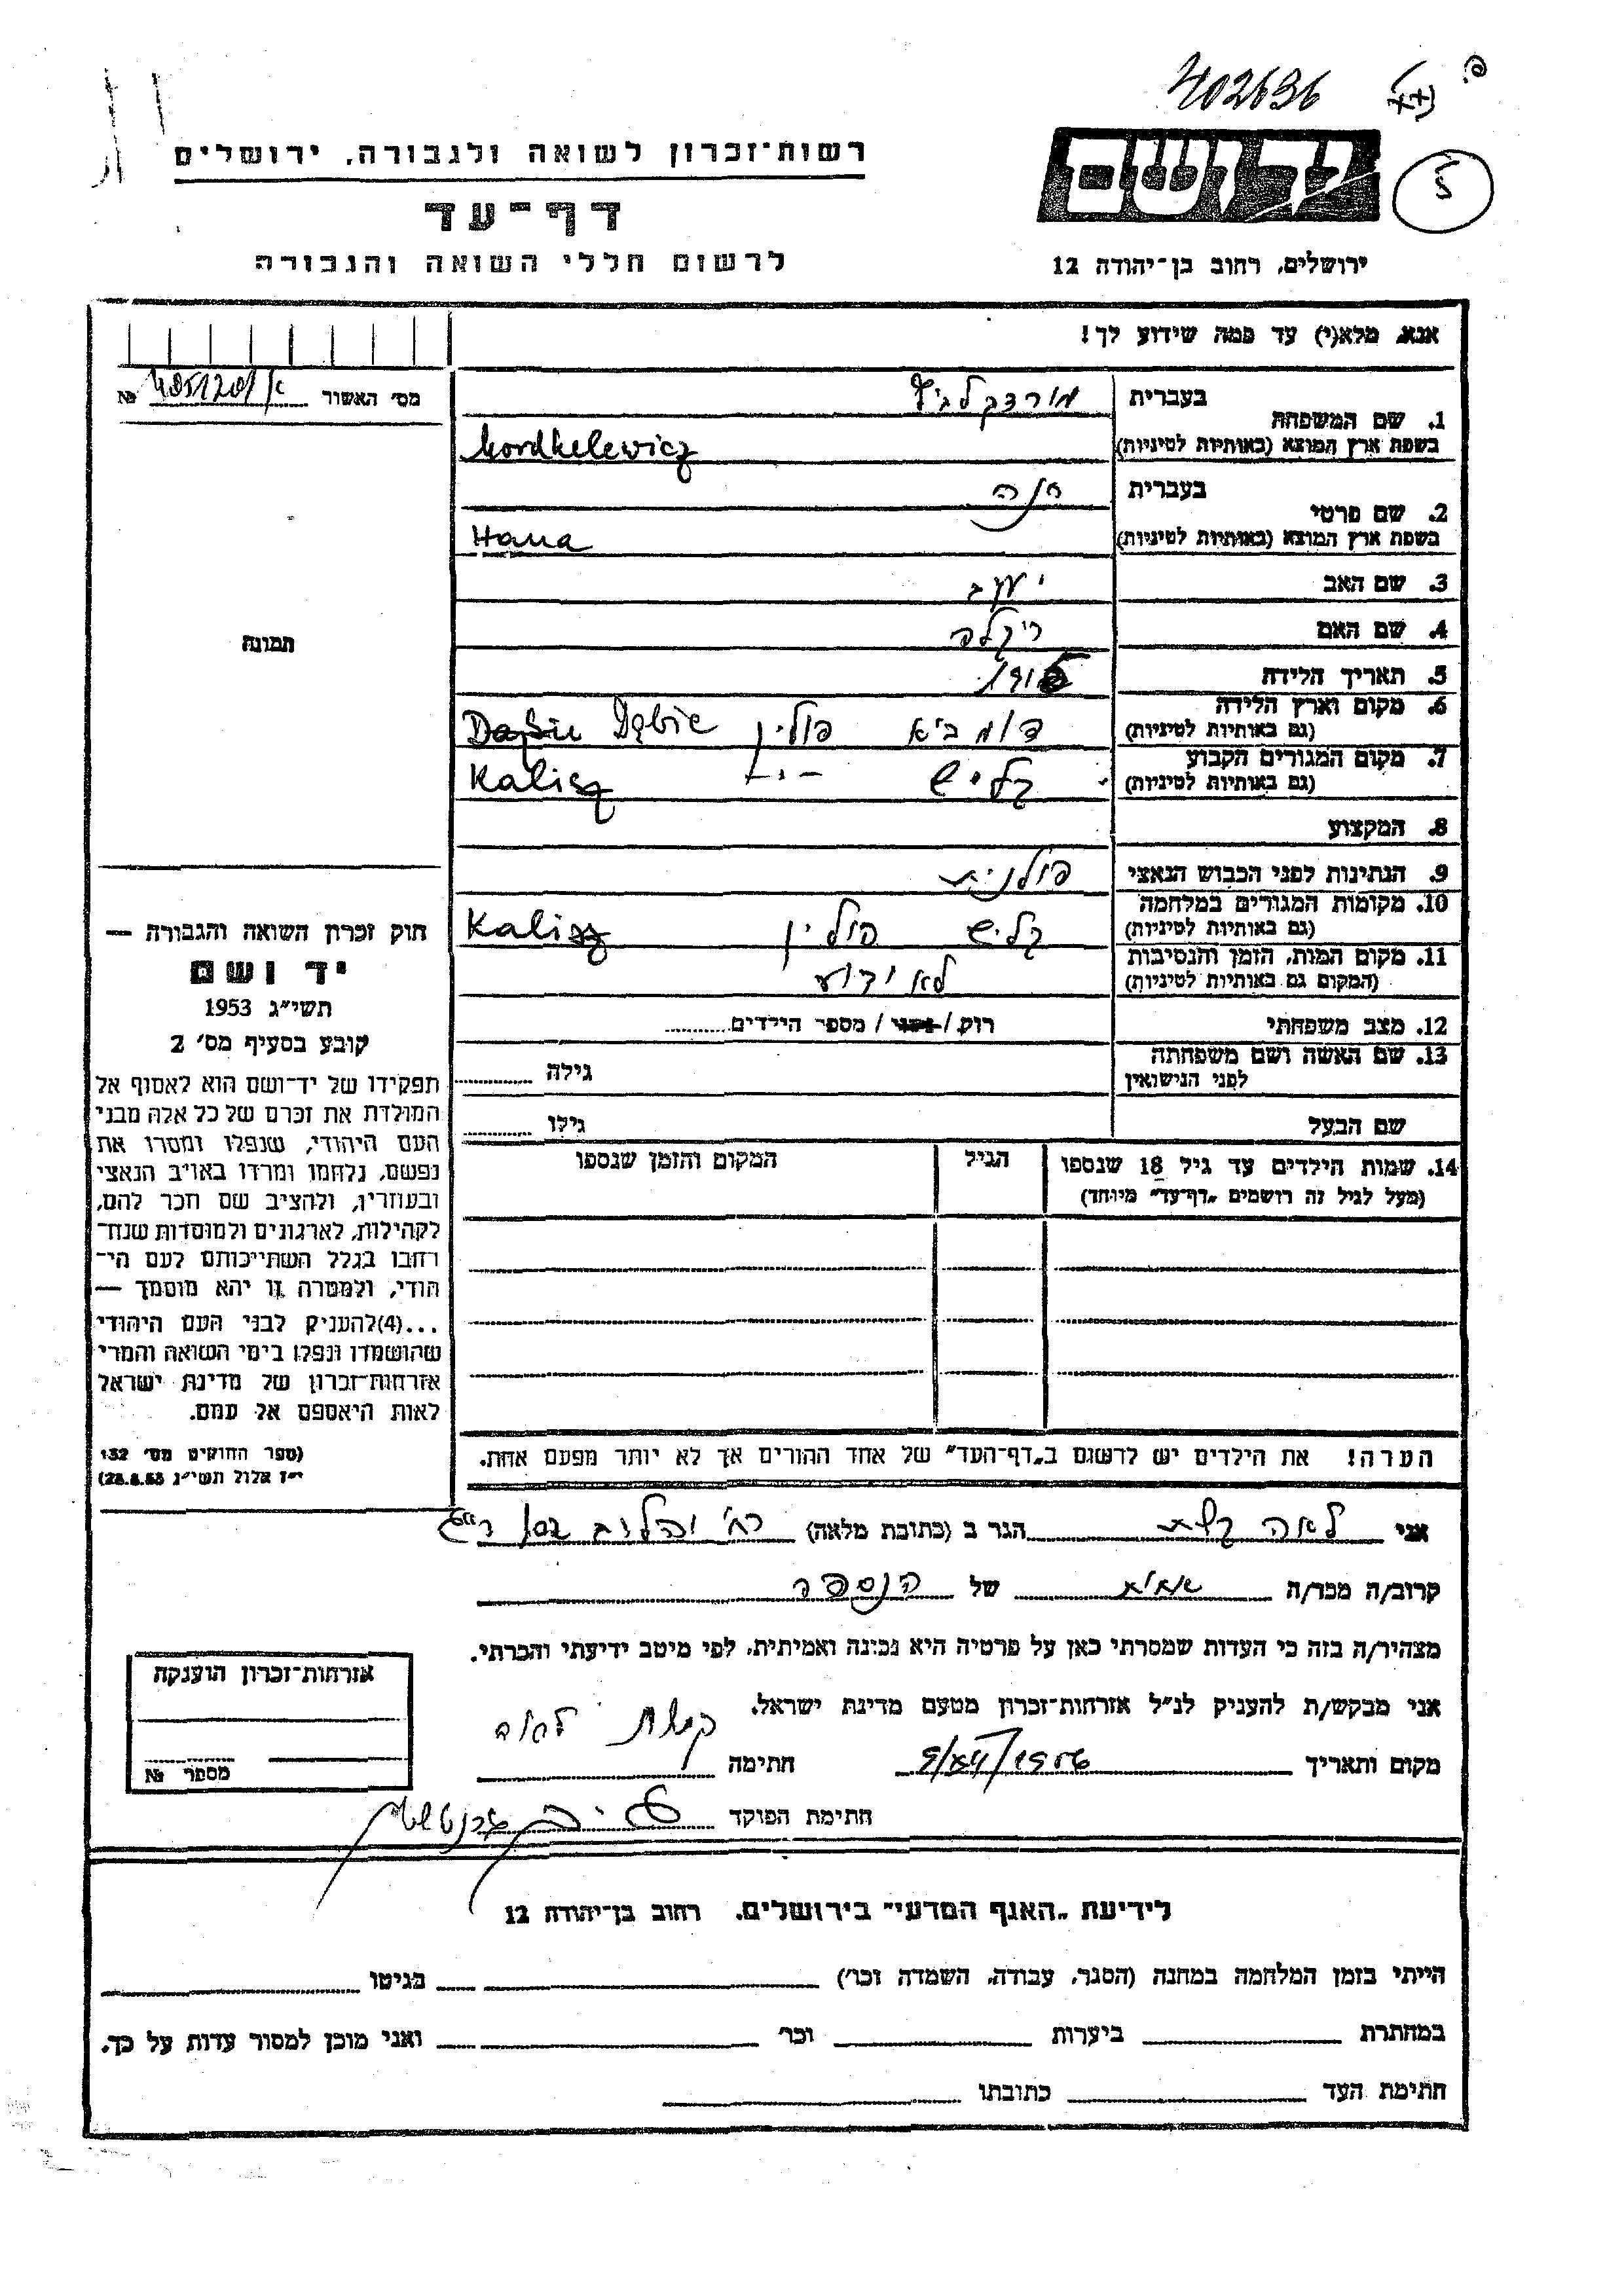 402636
רשות־זכרון לשואה ולגבורה, ירושלים
דף־עד
לרשום חללי השואה והגבורה
יד ושם
ירושלים, רחוב בן־יהודה 12
אנא, מלא(י) עד כמה שידוע לך!
מס׳ האשור №
1. שם המשפחה
בעברית
בשפת ארץ המוצא (באותיות לטיניות)
Mordkelewicz
2. שם פרטי
בעברית חנה
בשפת ארץ המוצא (באותיות לטיניות) Hana
3. שם האב יעקב
4. שם האם
5. תאריך הלידה
6. מקום וארץ הלידה דומביא פולין Dąbie
(גם באותיות לטיניות)
7. מקום המגורים הקבוע קליש -"- Kalisz
(גם באותיות לטיניות)
8. המקצוע
9. הנתינות לפני הכבוש הנאצי פולנית
10. מקומות המגורים במלחמה קליש פולין Kalisz
(גם באותיות לטיניות)
11. מקום המות, הזמן והנסיבות לא ידוע
(המקום גם באותיות לטיניות)
12. מצב משפחתי רוק / נשוי / מספר הילדים
13. שם האשה ושם משפחתה גילה
לפני הנישואין
שם הבעל גילו
14. שמות הילדים עד גיל 18 שנספו הגיל המקום והזמן שנספו
(מעל לגיל זה רושמים „דף־עד” מיוחד)
הערה! את הילדים יש לרשום ב„דף־העד” של אחד ההורים אך לא יותר מפעם אחת.
תמונה
חוק זכרון השואה והגבורה —
יד ושם
תשי״ג 1953
קובע בסעיף מס׳ 2
תפקידו של יד־ושם הוא לאסוף אל
המולדת את זכרם של כל אלה מבני
העם היהודי, שנפלו ומסרו את
נפשם, נלחמו ומרדו באויב הנאצי
ובעוזריו, ולהציב שם וזכר להם,
לקהילות, לארגונים ולמוסדות שנח־
רבו בגלל השתייכותם לעם הי־
הודי, ולמטרה זו יהא מוסמך —
...(4)להעניק לבני העם היהודי
שהושמדו ונפלו בימי השואה והמרי
אזרחות־זכרון של מדינת ישראל
לאות היאספם אל עמם.
(ספר החוקים מס׳ 132
י״ז אלול תשי״ג 28.8.53)
אני לאה הגר ב (כתובת מלאה)
קרוב/ה מכר/ה אחות של הנספה
מצהיר/ה בזה כי העדות שמסרתי כאן על פרטיה היא נכונה ואמיתית, לפי מיטב ידיעתי והכרתי.
אני מבקש/ת להעניק לנ״ל אזרחות־זכרון מטעם מדינת ישראל.
מקום ותאריך חתימה
חתימת הפוקד
אזרחות־זכרון הוענקה
מספר №
לידיעת „האגף המדעי” בירושלים, רחוב בן־יהודה 12
הייתי בזמן המלחמה במחנה (הסגר, עבודה, השמדה וכו׳) בגיטו
במחתרת ביערות וכו׳ ואני מוכן למסור עדות על כך.
חתימת העד כתובתו